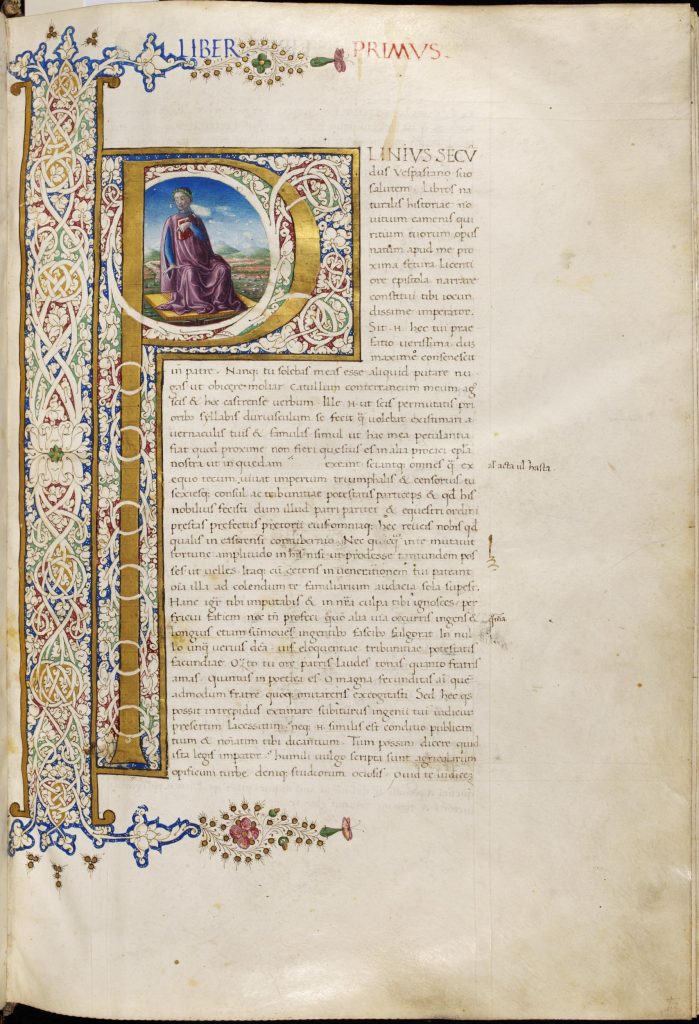 LIBER PRIMVS.
PLINIVS SECŪ
dus Vespasiano suo
salutem. Libros na
turalis historiae no
vitium camenis qui
ritium tuorum opus
natum apud me pro
xima fetura licenti
ore epistola narrare
constitui tibi iocun
dissime imperator.
Sit .n. hec tui prae
fatio verissima. dus
maximo consenescit
in patre. Nanq; tu solebas meas esse aliquid putare nu
gas ut obiicere moliar Catullum conterraneum meum. ag
scis & hoc castrense verbum. Ille .n. ut scis permutatis pri
oribus syllabis duriusculum se fecit q̄ volebat existimari a
vernaculis tuis & famulis. simul ut hac mea petulantia
fiat quod proxime non fieri questus es in alia procaci epl̄a
nostra ut in quedam exeant sciantq; omnes q̄ ex
equo tecum vivat imperium triumphalis & censorius tu
sexiesq; consul ac tribunitiae potestatis particeps & qd his
nobilius fecisti dum illud patri pariter & equestri ordini
prestas prefectus pretorii eius omniaq; hec reipublice nobis qd
qualis in castrensi contubernio. Nec quicq̄ in te mutavit
fortune amplitudo in his nisi ut prodesse tantundem pos
ses ut velles. Itaq; cū ceteris in venerationem tui pateant
oīa illa ad colendum te familiarium audacia sola supest.
Hanc igr̄ tibi imputabis & in nr̄a culpa tibi ignosces. per
fricui faciem nec tn̄ profeci. quō alia via occurris ingens &
longius etiam submoves ingentibus fascibus. fulgorat in nul
lo unq̄ verius dictā vis eloquentiae tribunitiae potestatis
facundiae. Q̄to tu ore patris laudes tonas. quanto fratris
amas. Quantus in poetica es. O magna fecunditas aī. quē
admodum fratrē quoq; imitareris excogitasti. Sed hec q̄s
possit intrepidus extimare subiturus ingenii tui iudiciū
presertim lacessitum. neq; .n. similis est conditio publican
tium & noīatim tibi dicantium. Tum possum dicere quid
ista legis imperator? humili vulgo scripta sunt agricolarum
opificum turbe. deniq; studiorum ociosis. Quid te iudicem
al' acta ul' hasta.